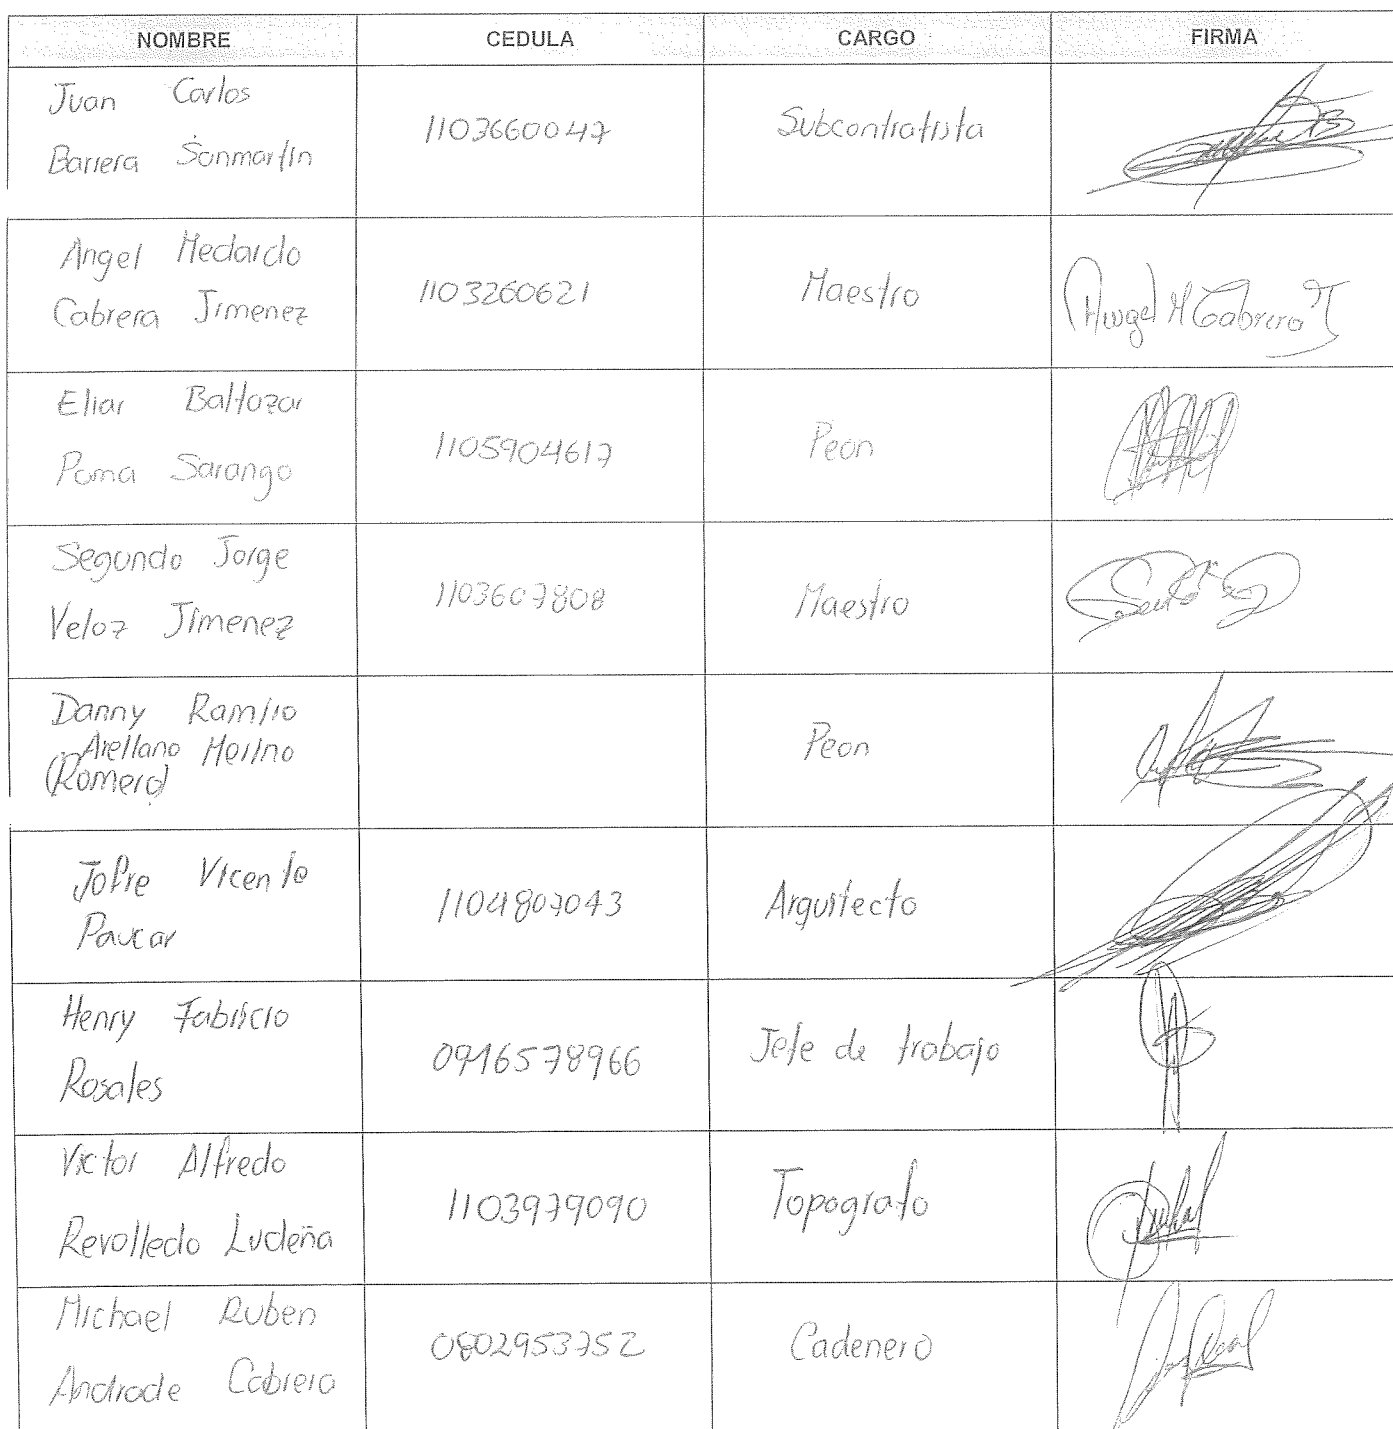 NOMBRE CEDULA CARGO FIRMA
Juan Carlos
Barrera Sanmartin
1103660047
Subcontratista
Angel Medardo
Cabrera Jimenez
1103260621
Maestro
Angel M Cabrera J
Eliar Baltazar
Poma Sarango
1105904617
Peon
Segundo Jorge
Veloz Jimenez
1103607808
Maestro
Danny Ramiro
Arellano Merino
(Romero)
Peon
Jofre Vicente
Paucar
1104807043
Arquitecto
Henry Fabricio
Rosales
0916578966
Jefe de trabajo
Victor Alfredo
Revolledo Ludeña
1103979090
Topografo
Michael Ruben
Andrade Cabrera
0802953752
Cadenero